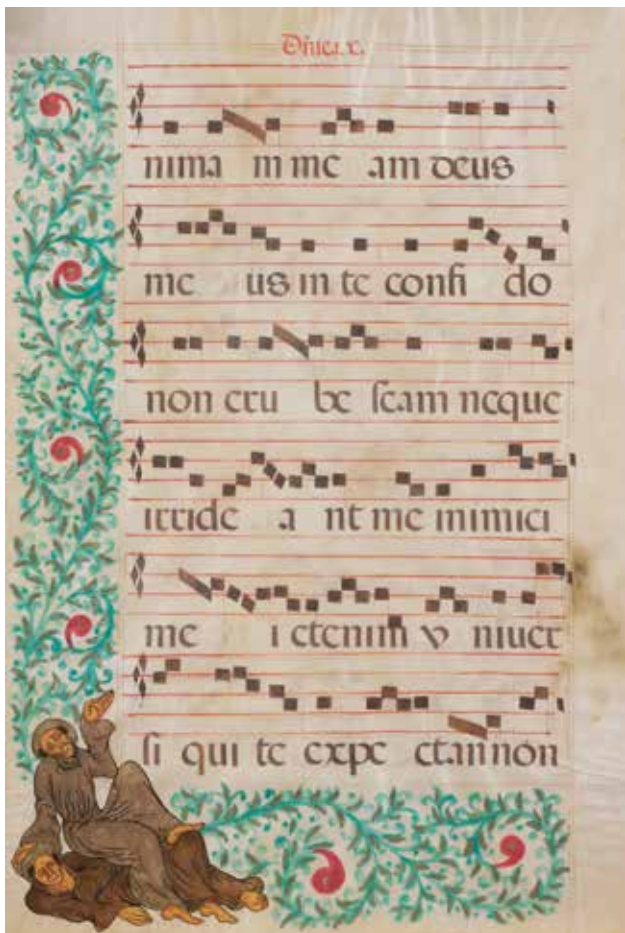 nima m me am deus
me us in te confi do
non eru be ſcam neque
irride a nt me inimici
me i etenim v niuer
ſi qui te expe ctan non